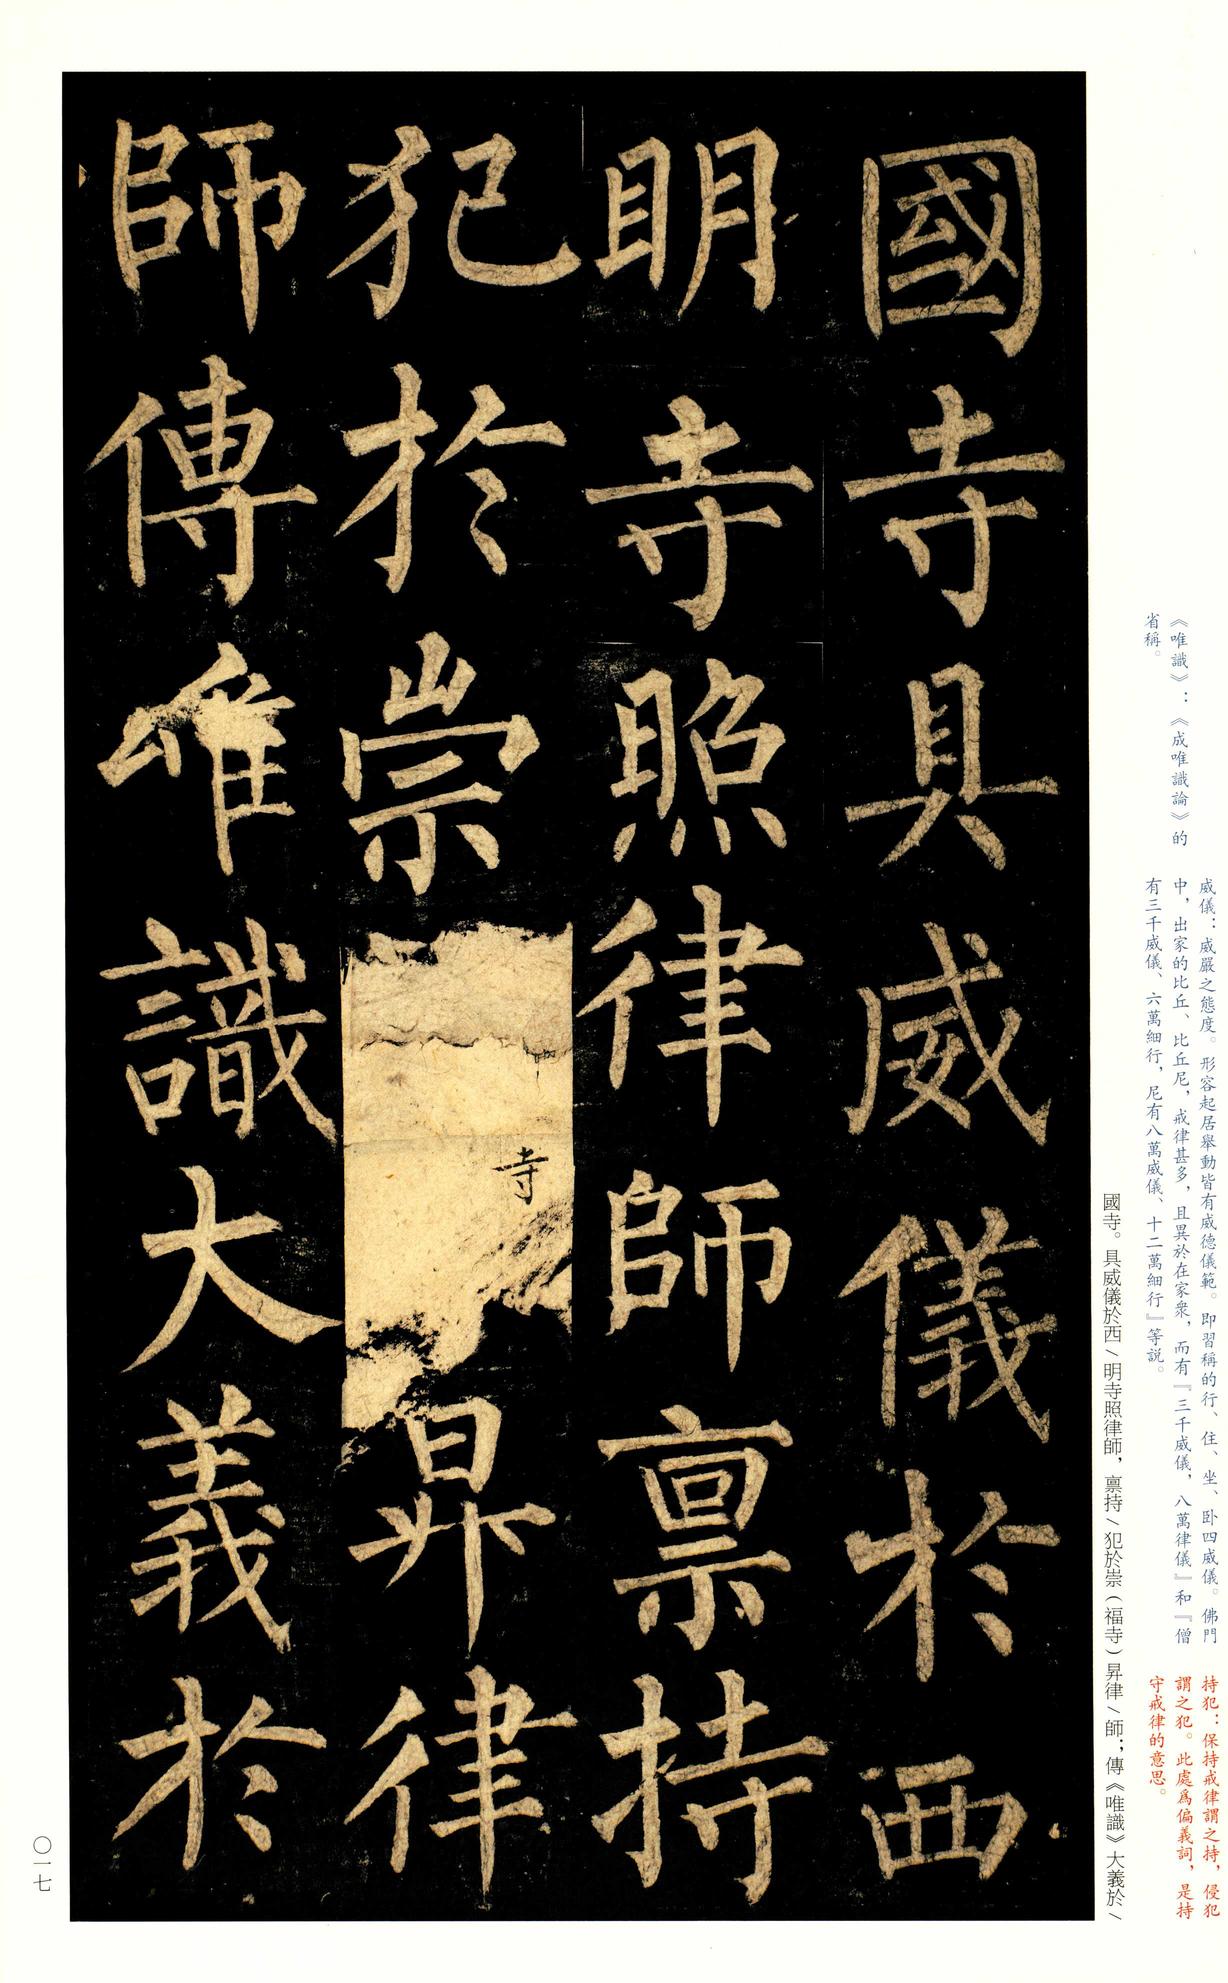 威儀：威嚴之態度。形容起居舉動皆有威德儀範。即習稱的行、住、坐、卧四威儀。佛門
中，出家的比丘、比丘尼，戒律甚多，且異於在家衆，而有『三千威儀，八萬律儀』和『僧
有三千威儀、六萬細行，尼有八萬威儀、十二萬細行』等説。
《唯識》：《成唯識論》的
省稱。
持犯：保持戒律謂之持，侵犯
謂之犯。此處爲偏義詞，是持
守戒律的意思。
國寺。具威儀於西／明寺照律師，禀持／犯於崇（福寺）昇律／師；傳《唯識》大義於／
國寺具威儀於西
明寺照律師禀持
犯於崇寺昇律
師傳唯識大義於
〇一七